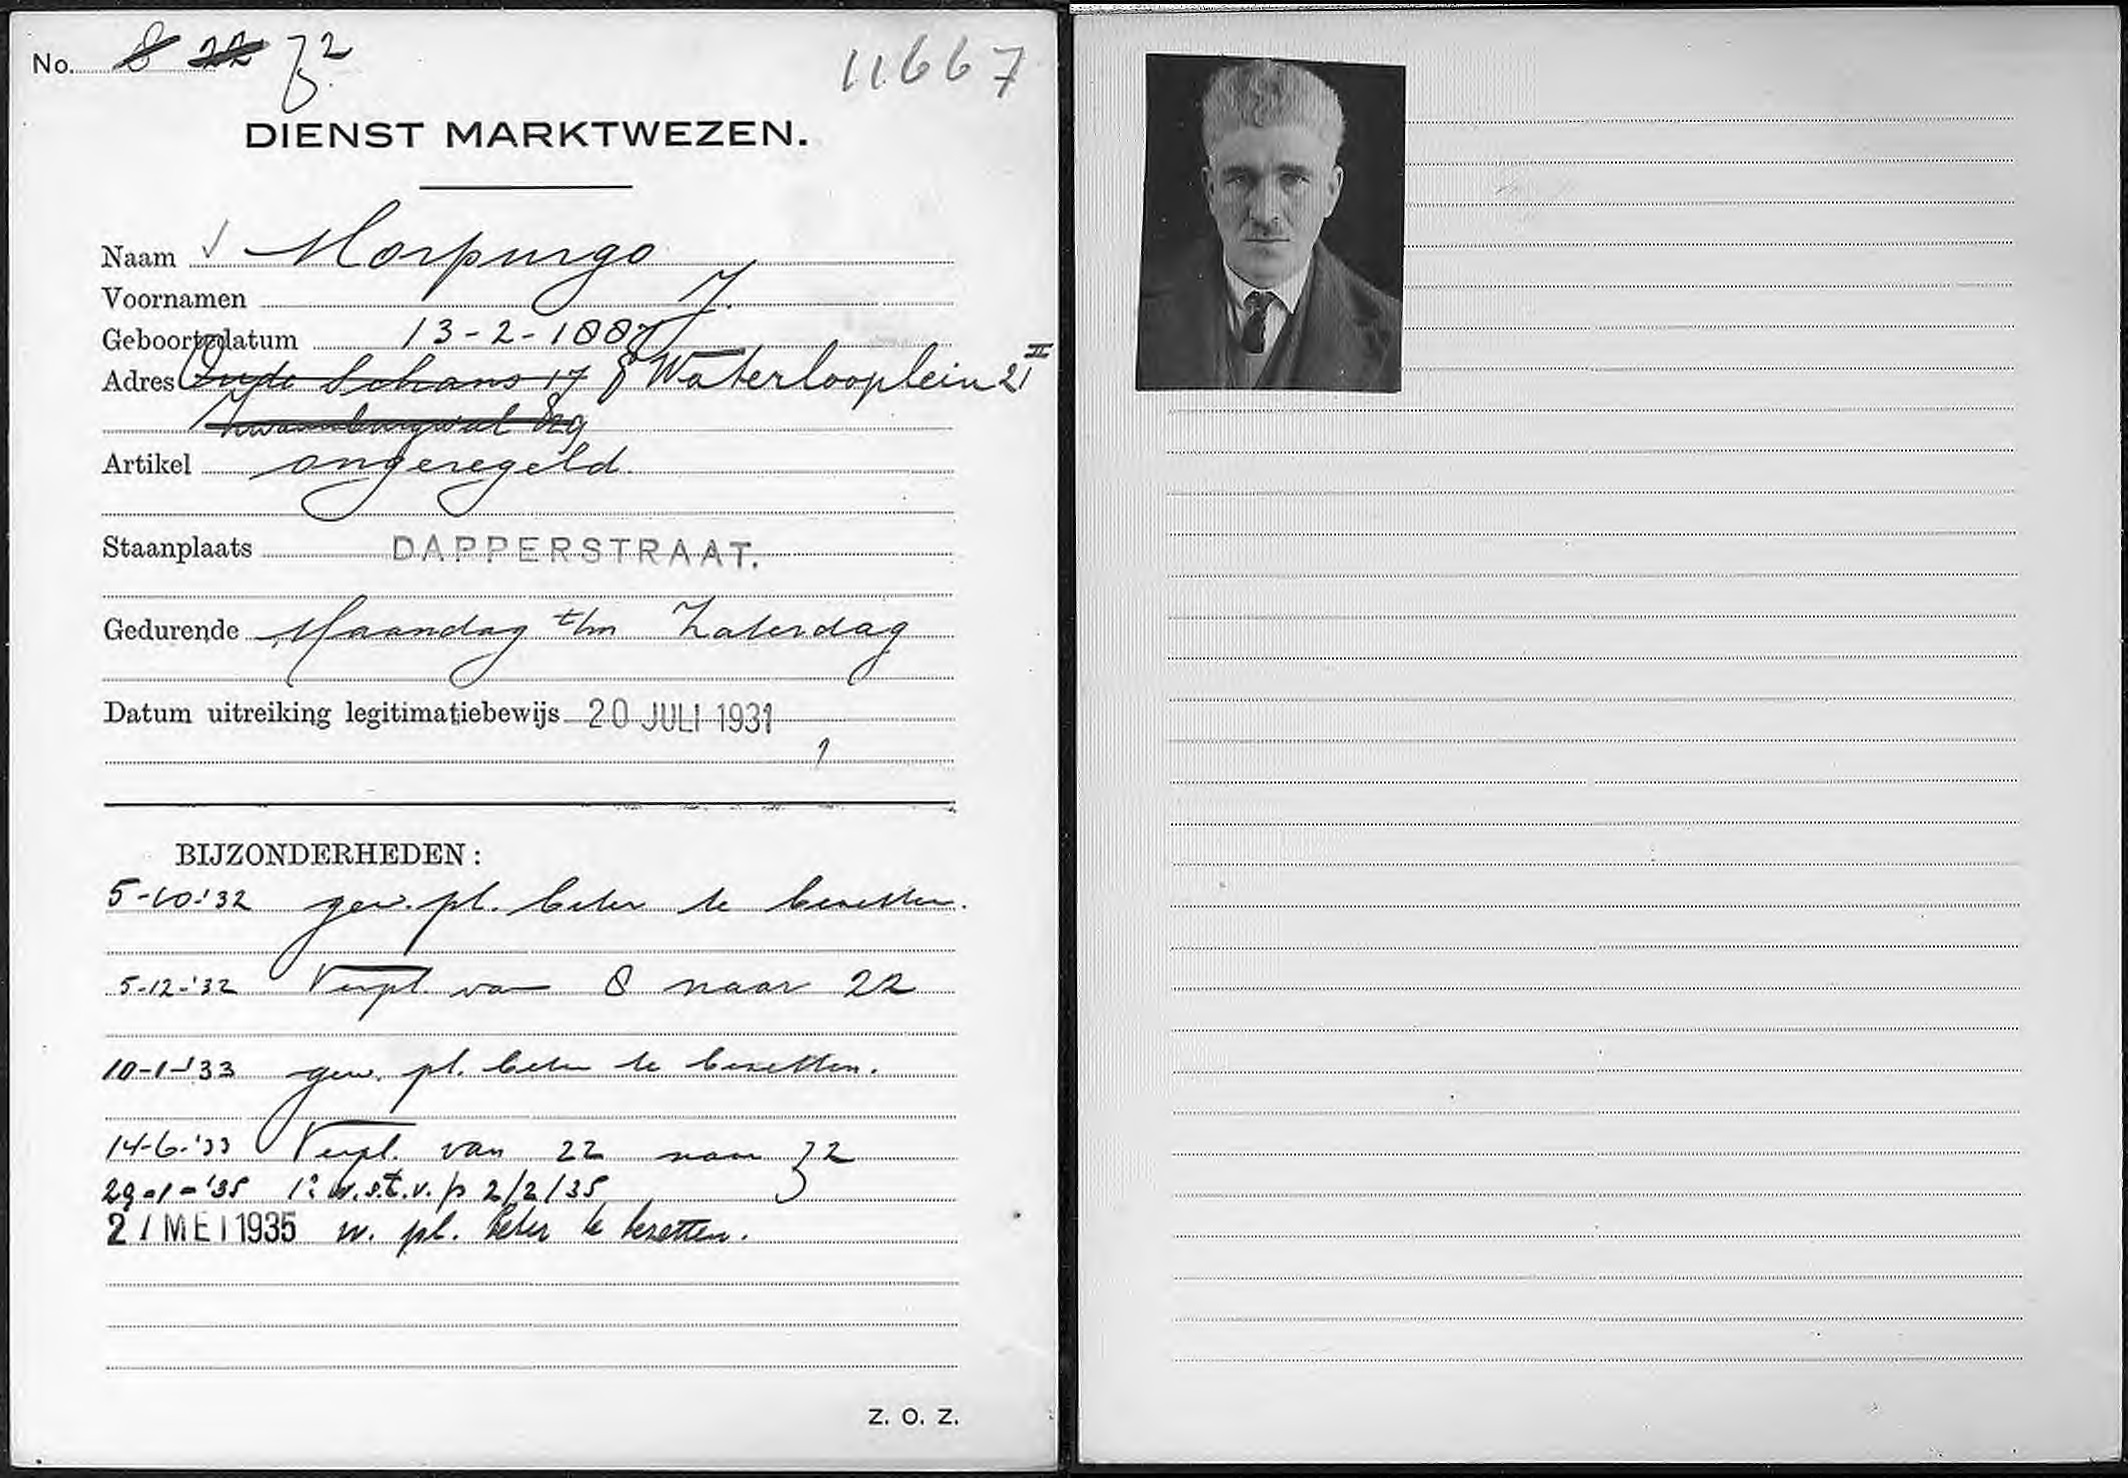 No. 8 22 32
11667
DIENST MARKTWEZEN.
Naam Morpurgo
Voornamen J.
Geboortedatum 13-2-1887
Adres Oude Schans 17 Waterlooplein 21 II
Zwanenburgwal
Artikel ongeregeld.
Staanplaats DAPPERSTRAAT.
Gedurende Maandag t/m Zaterdag
Datum uitreiking legitimatiebewijs 20 JULI 1931
BIJZONDERHEDEN:
5-10-'32 gew. pl. beter te bezetten.
5-12-'32 Verpl. van 8 naar 22
10-1-'33 gew. pl. beter te bezetten.
14-6-'33 Verpl. van 22 naar 32
29-1-'35 1e w.s.t.v. p 2/2/35
21 MEI 1935 w. pl. beter te bezetten.
Z. O. Z.